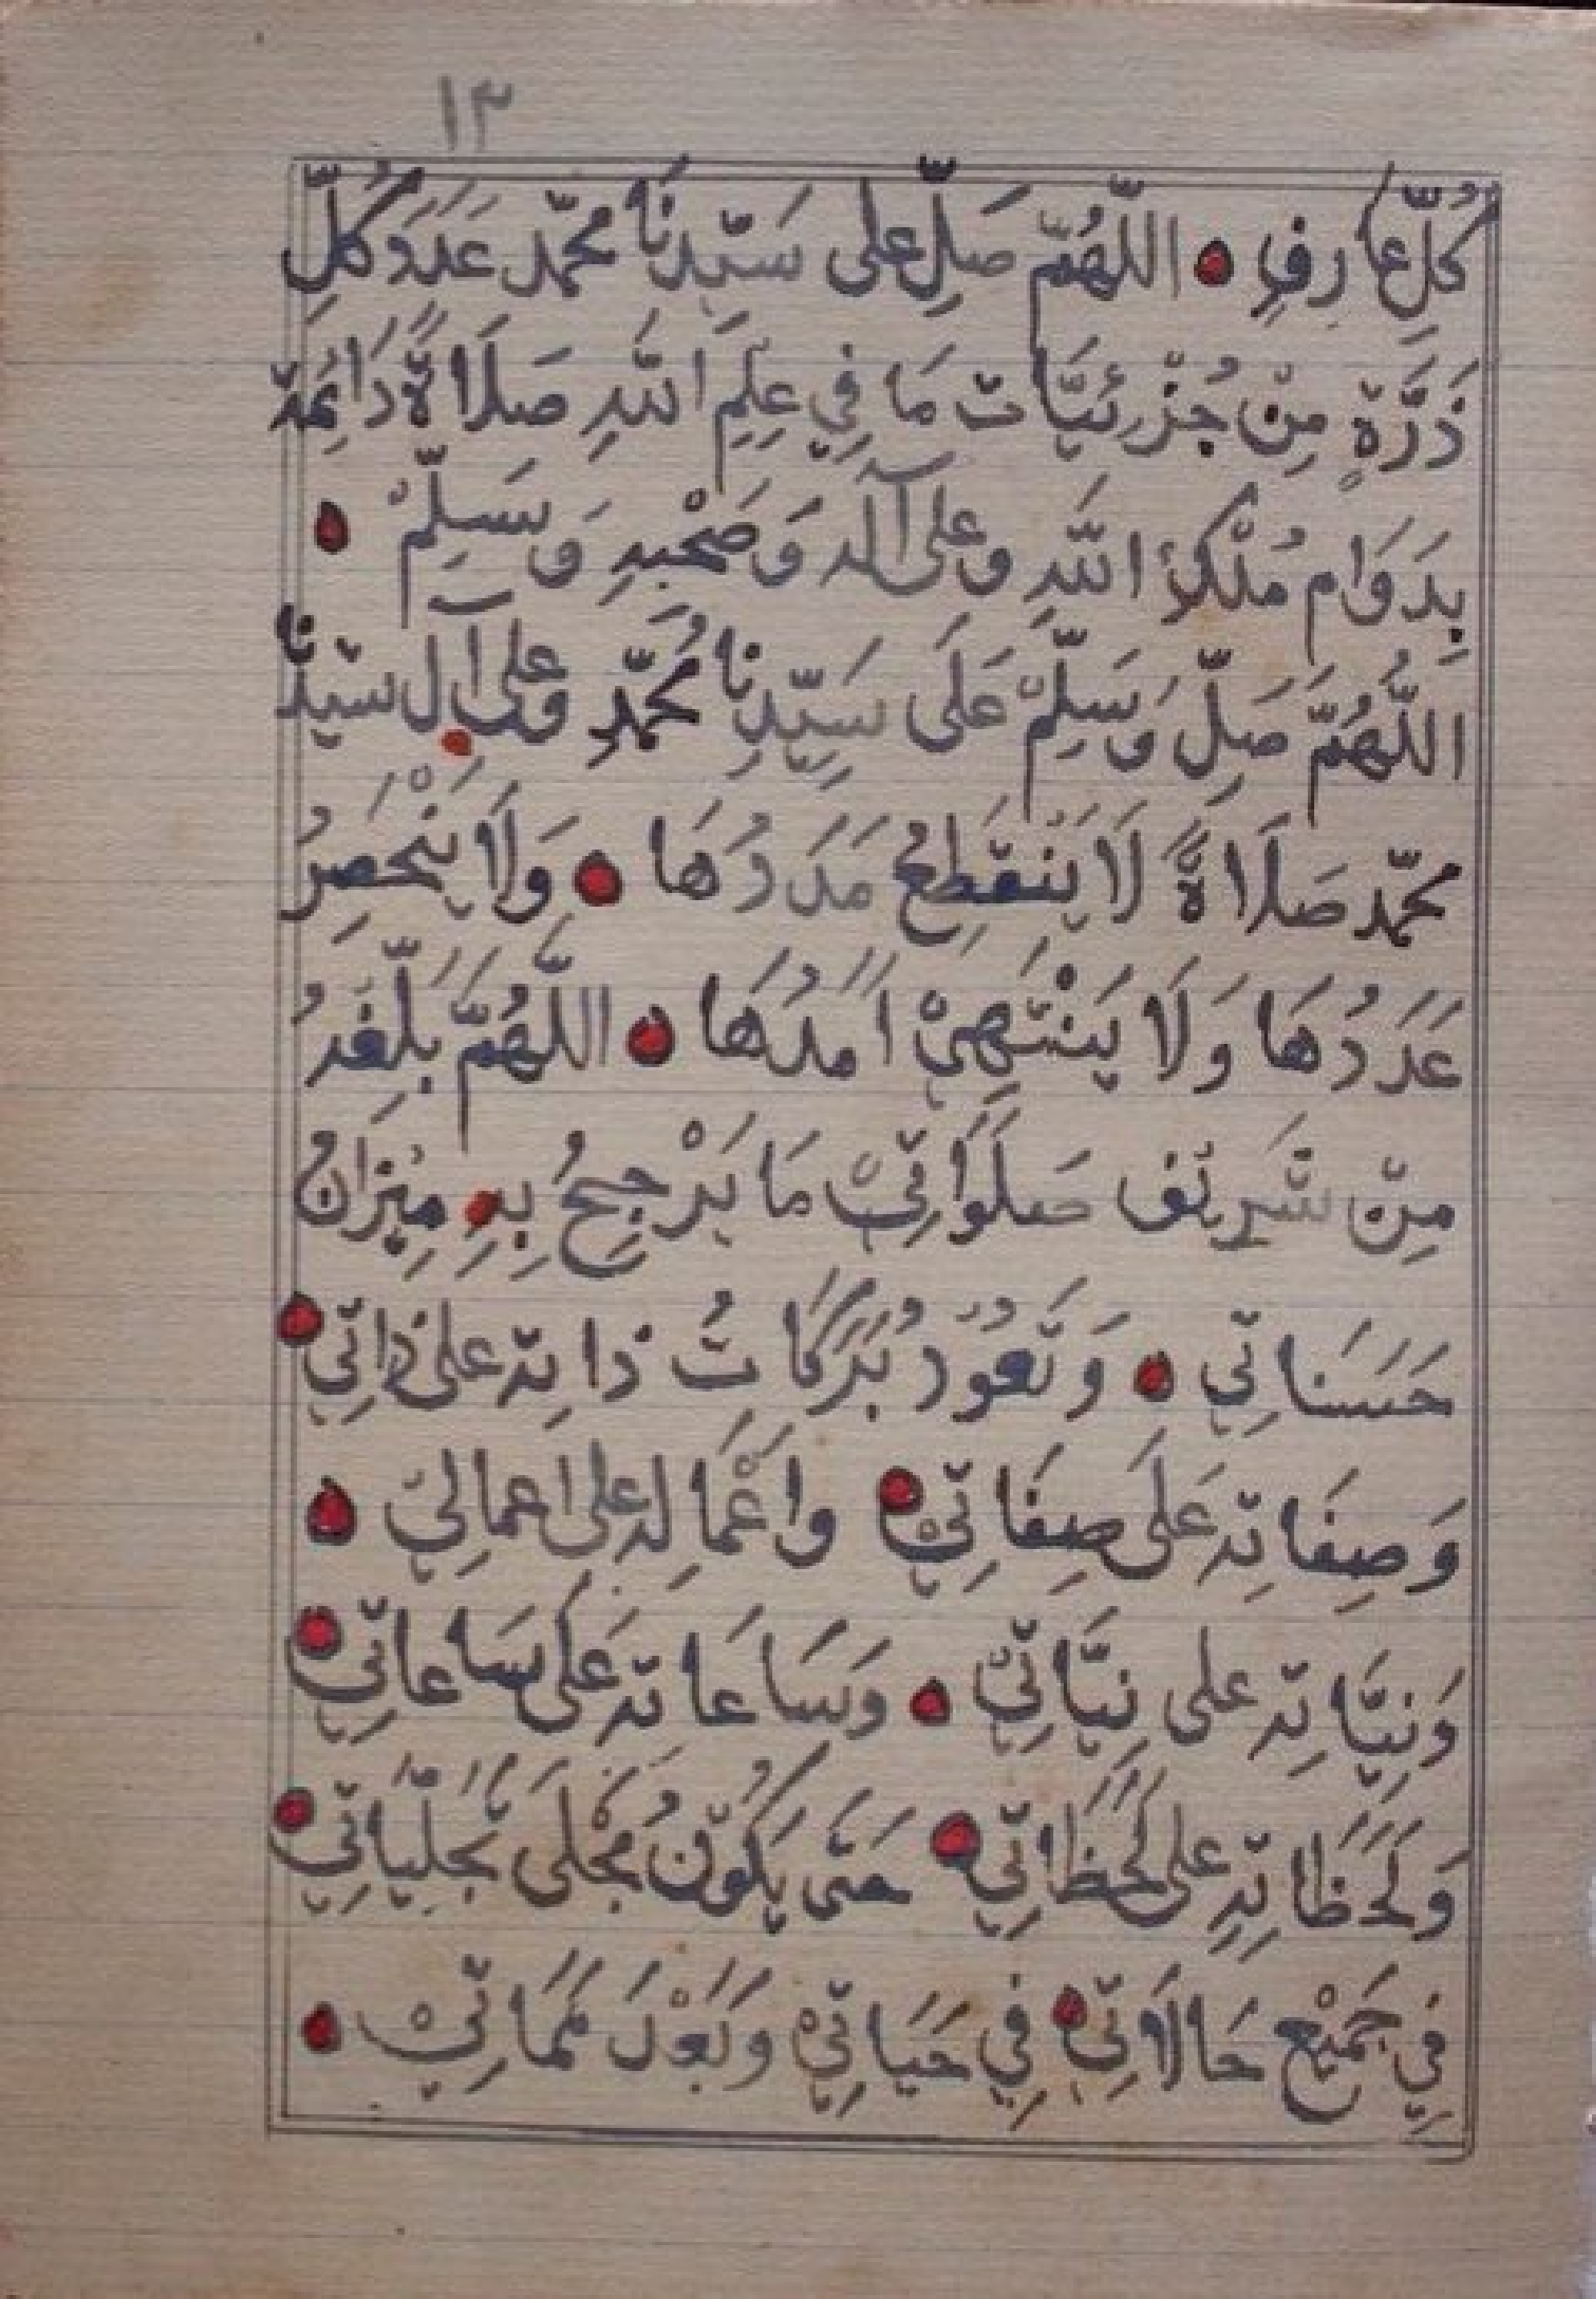 ١٣
كُلِّ عارِفٍ ه اللَّهُمَّ صَلِّ على سَيِّدِنَا محمّد عَدَدَ كُلِّ
ذَرَّةٍ مِنْ جُزْئِيَّات مَا فِي عِلِمِ اللَّهِ صَلَاةً دَائِمَة
بِدَوَام مُلْكِ اللَّهِ وعلى آله وَصَحْبِهِ وَسَلِّمْ ه
اللَّهُمَّ صَلِّ وَسَلِّمْ عَلَى سَيِّدِنَا مُحَمَّدٍ وعلى آل سيدنا
محمّد صَلَاةً لَا يَنْقَطِعُ مَدَدُهَا ه وَلَا يَنْحَصِرُ
عَدَدُهَا وَلَا يَنْتَهِيْ اَمَدُهَا ه اللَّهُمَّ بَلِّغَدُ
مِنْ شَرِيْف صَلَوَاتِيْ مَا يَرْجِحُ بِهِ مِيْزَانُ
حَسَناتِي ه وَتَعُوْدُ بَرَكَاتُ ذاتِه على ذَاتِي ه
وَصِفَاتِه عَلَى صِفَاتِيْ ه واَعْمَالِه على اعمالِيْ ه
وَنِيَّاتِه على نِيَّاتِيْ ه وَسَاعَاتِه عَلَى سَاعاتِي ه
وَلَحَظَاتِهِ على لَحَظَاتِي ه حَتى يَكُوْنُ مَجْلَى تَجَلِّيَاتِي ه
فِي جَمِيْع حَالَاتِي ه فِي حَيَاتِيْ وَبَعْدَ مَمَاتِيْ ه